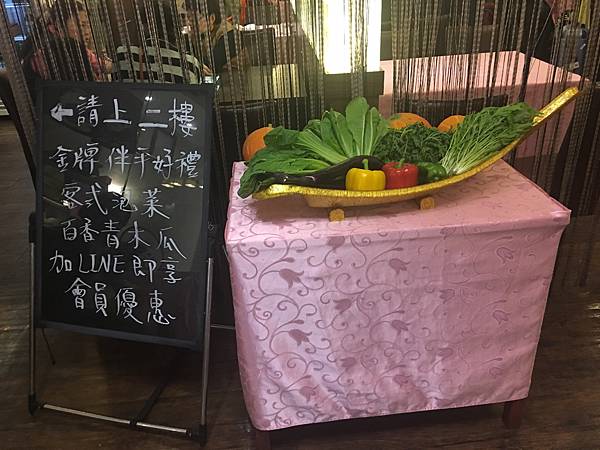 ←請上二樓
金牌伴手好禮
客式泡菜
百香青木瓜
加LINE即享
會員優惠